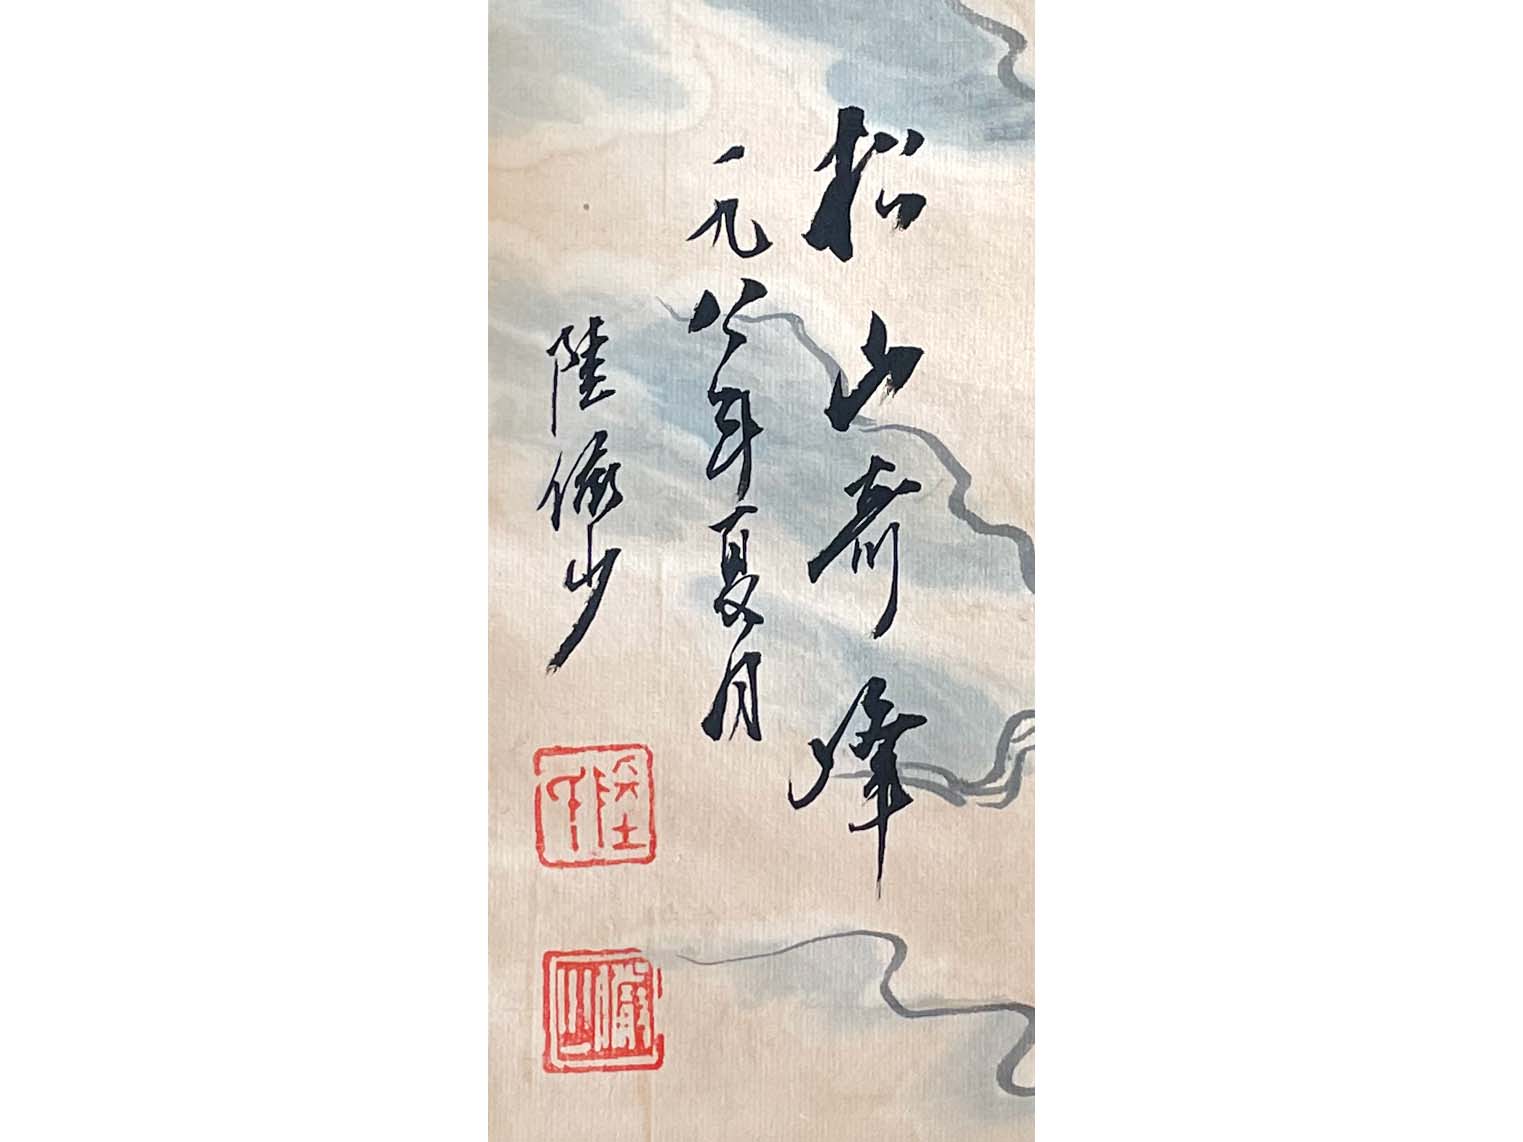 松山奇峰
一九八一年夏月
陸儼少